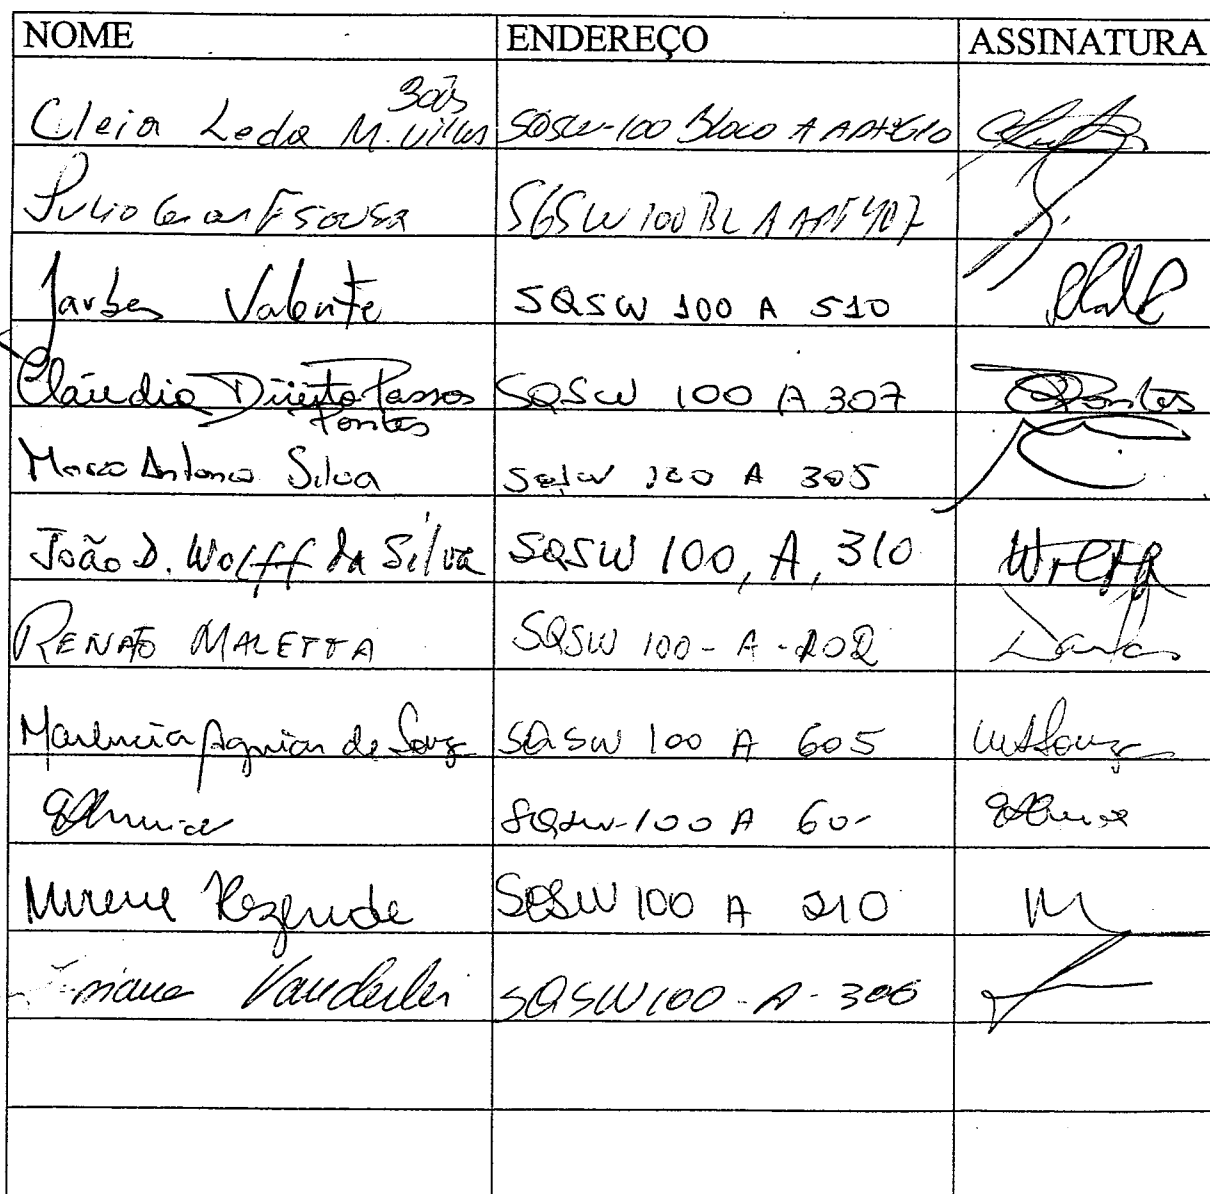 NOME ENDEREÇO ASSINATURA
Cleia Leda M. Villas Boas SQSW-100 Bloco A Apt 610
Julio Cesar F Sousa SQSW 100 BL A APT 407
Jarbas Valente SQSW 100 A 510
Cláudia Direito Passos Pontes SQSW 100 A 307 Pontes
Marco Antonio Silva SQSW 100 A 305
João D. Wolff da Silva SQSW 100, A, 310 Wolff
RENATO MALETTA SQSW 100 - A -
Marlucia Aguiar de Souza SQSW 100 A 605 MASouza
SQSW-100 A
Mirene Rezende SQSW 100 A 210 M
Vanderlei SQSW 100 - A - 306